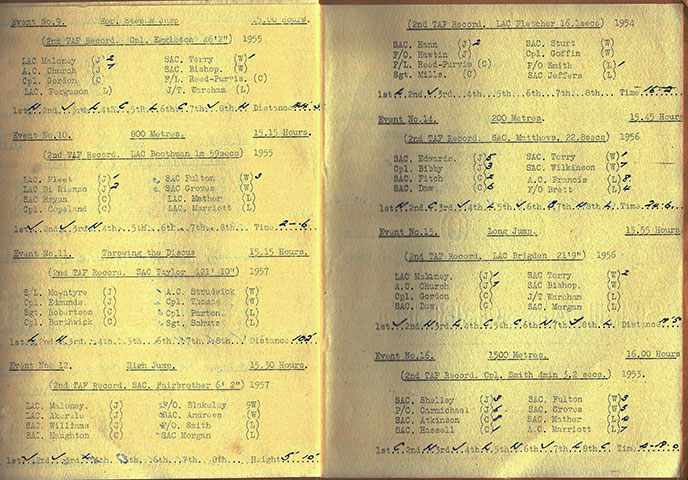 Event No.9. Hop, Step & Jump 15.00 Hours.
(2nd TAF Record. Cpl. Eggleton 46'2") 1955
LAC Maloney (J) 2 SAC. Terry (W) 1
A.C. Church (J) SAC. Bishop. (W)
Cpl. Gordon (C) F/L. Reed-Purvis. (C)
LAC. Ferguson L) J/T. Wareham (L)
1st 2nd 3rd 4th 5th 6th 7th 8th Distance
Event No.10. 800 Metres. 15.15 Hours.
(2nd TAF Record. LAC Boothman 1m 59secs) 1955
LAC. Fleet (J) 1 SAC Fulton (W) 3
LAC Di Rienzo (J) 2 SAC Groves (W)
SAC Bryan (C) LAC. Mather (L)
Cpl. Copeland (C) LAC. Marriott (L)
1st 2nd 3rd 4th 5th 6th 7th 8th Time 2-6
Event No.11. Throwing the Discus 15.15 Hours.
(2nd TAF Record. SAC Taylor 121' 10") 1957
S/L. McIntyre (J) A.C. Strudwick (W)
Cpl. Edmunds. (J) Cpl. Thomas (W)
Sgt. Robertson (C) Cpl. Purton. (L)
Cpl. Borthwick (C) Sgt. Schutz (L)
1st 2nd 3rd 4th 5th 6th 7th 8th Distance
Event No. 12. High Jump. 15.30 Hours.
(2nd TAF Record. SAC. Fairbrother 6' 2") 1957
LAC. Maloney. (J) F/O. Blakeley (W)
LAC. (J) SAC. Andrews (W)
SAC. Williams (C) F/O. Smith (L)
SAC. Haughton (C) SAC Morgan (L)
1st 2nd 3rd 4th 5th 6th 7th 8th Height 5'10"
(2nd TAF Record. LAC Fletcher 16.1secs) 1954
SAC. Hann (J) 2 SAC. Sturt (W)
F/O. Hawtin (J) Cpl. Goffin (W)
F/L. Reed-Purvis (C) F/O Smith (L) 1
Sgt. Mills. (C) SAC Jeffers (L)
1st 2nd 3rd 4th 5th 6th 7th 8th Time 16-2
Event No.14. 200 Metres. 15.45 Hours.
(2nd TAF Record. SAC. Matthews. 22.8secs) 1956
SAC. Edwards. (J) SAC. Terry (W) 1
Cpl. Bibby (J) SAC. Wilkinson (W)
SAC. Fitch (C) A.C. Francis (L)
SAC. Daw (C) F/O Brett (L)
1st 2nd 3rd 4th 5th 6th 7th 8th Time 24-6
Event No.15. Long Jump. 15.55 Hours.
(2nd TAF Record. LAC Brigden 21'9") 1956
LAC Maloney. (J) 1 SAC Terry (W) 2
A.C. Church (J) SAC Bishop. (W)
Cpl. Gordon (C) J/T Wareham (L)
SAC. Daw. (C) SAC. Morgan (L)
1st 2nd 3rd 4th 5th 6th 7th 8th Distance
Event No.16. 1500 Metres. 16.00 Hours
(2nd TAF Record. Cpl. Smith 4min 3.2 secs.) 1953.
SAC. Shelley (J) SAC. Fulton (W) 3
P/O. Carmichael (J) SAC. Groves (W)
SAC. Atkinson (C) SAC. Mather (L)
SAC. Hassell (C) A.C. Marriott (L)
1st 2nd 3rd 4th 5th 6th 7th 8th Time